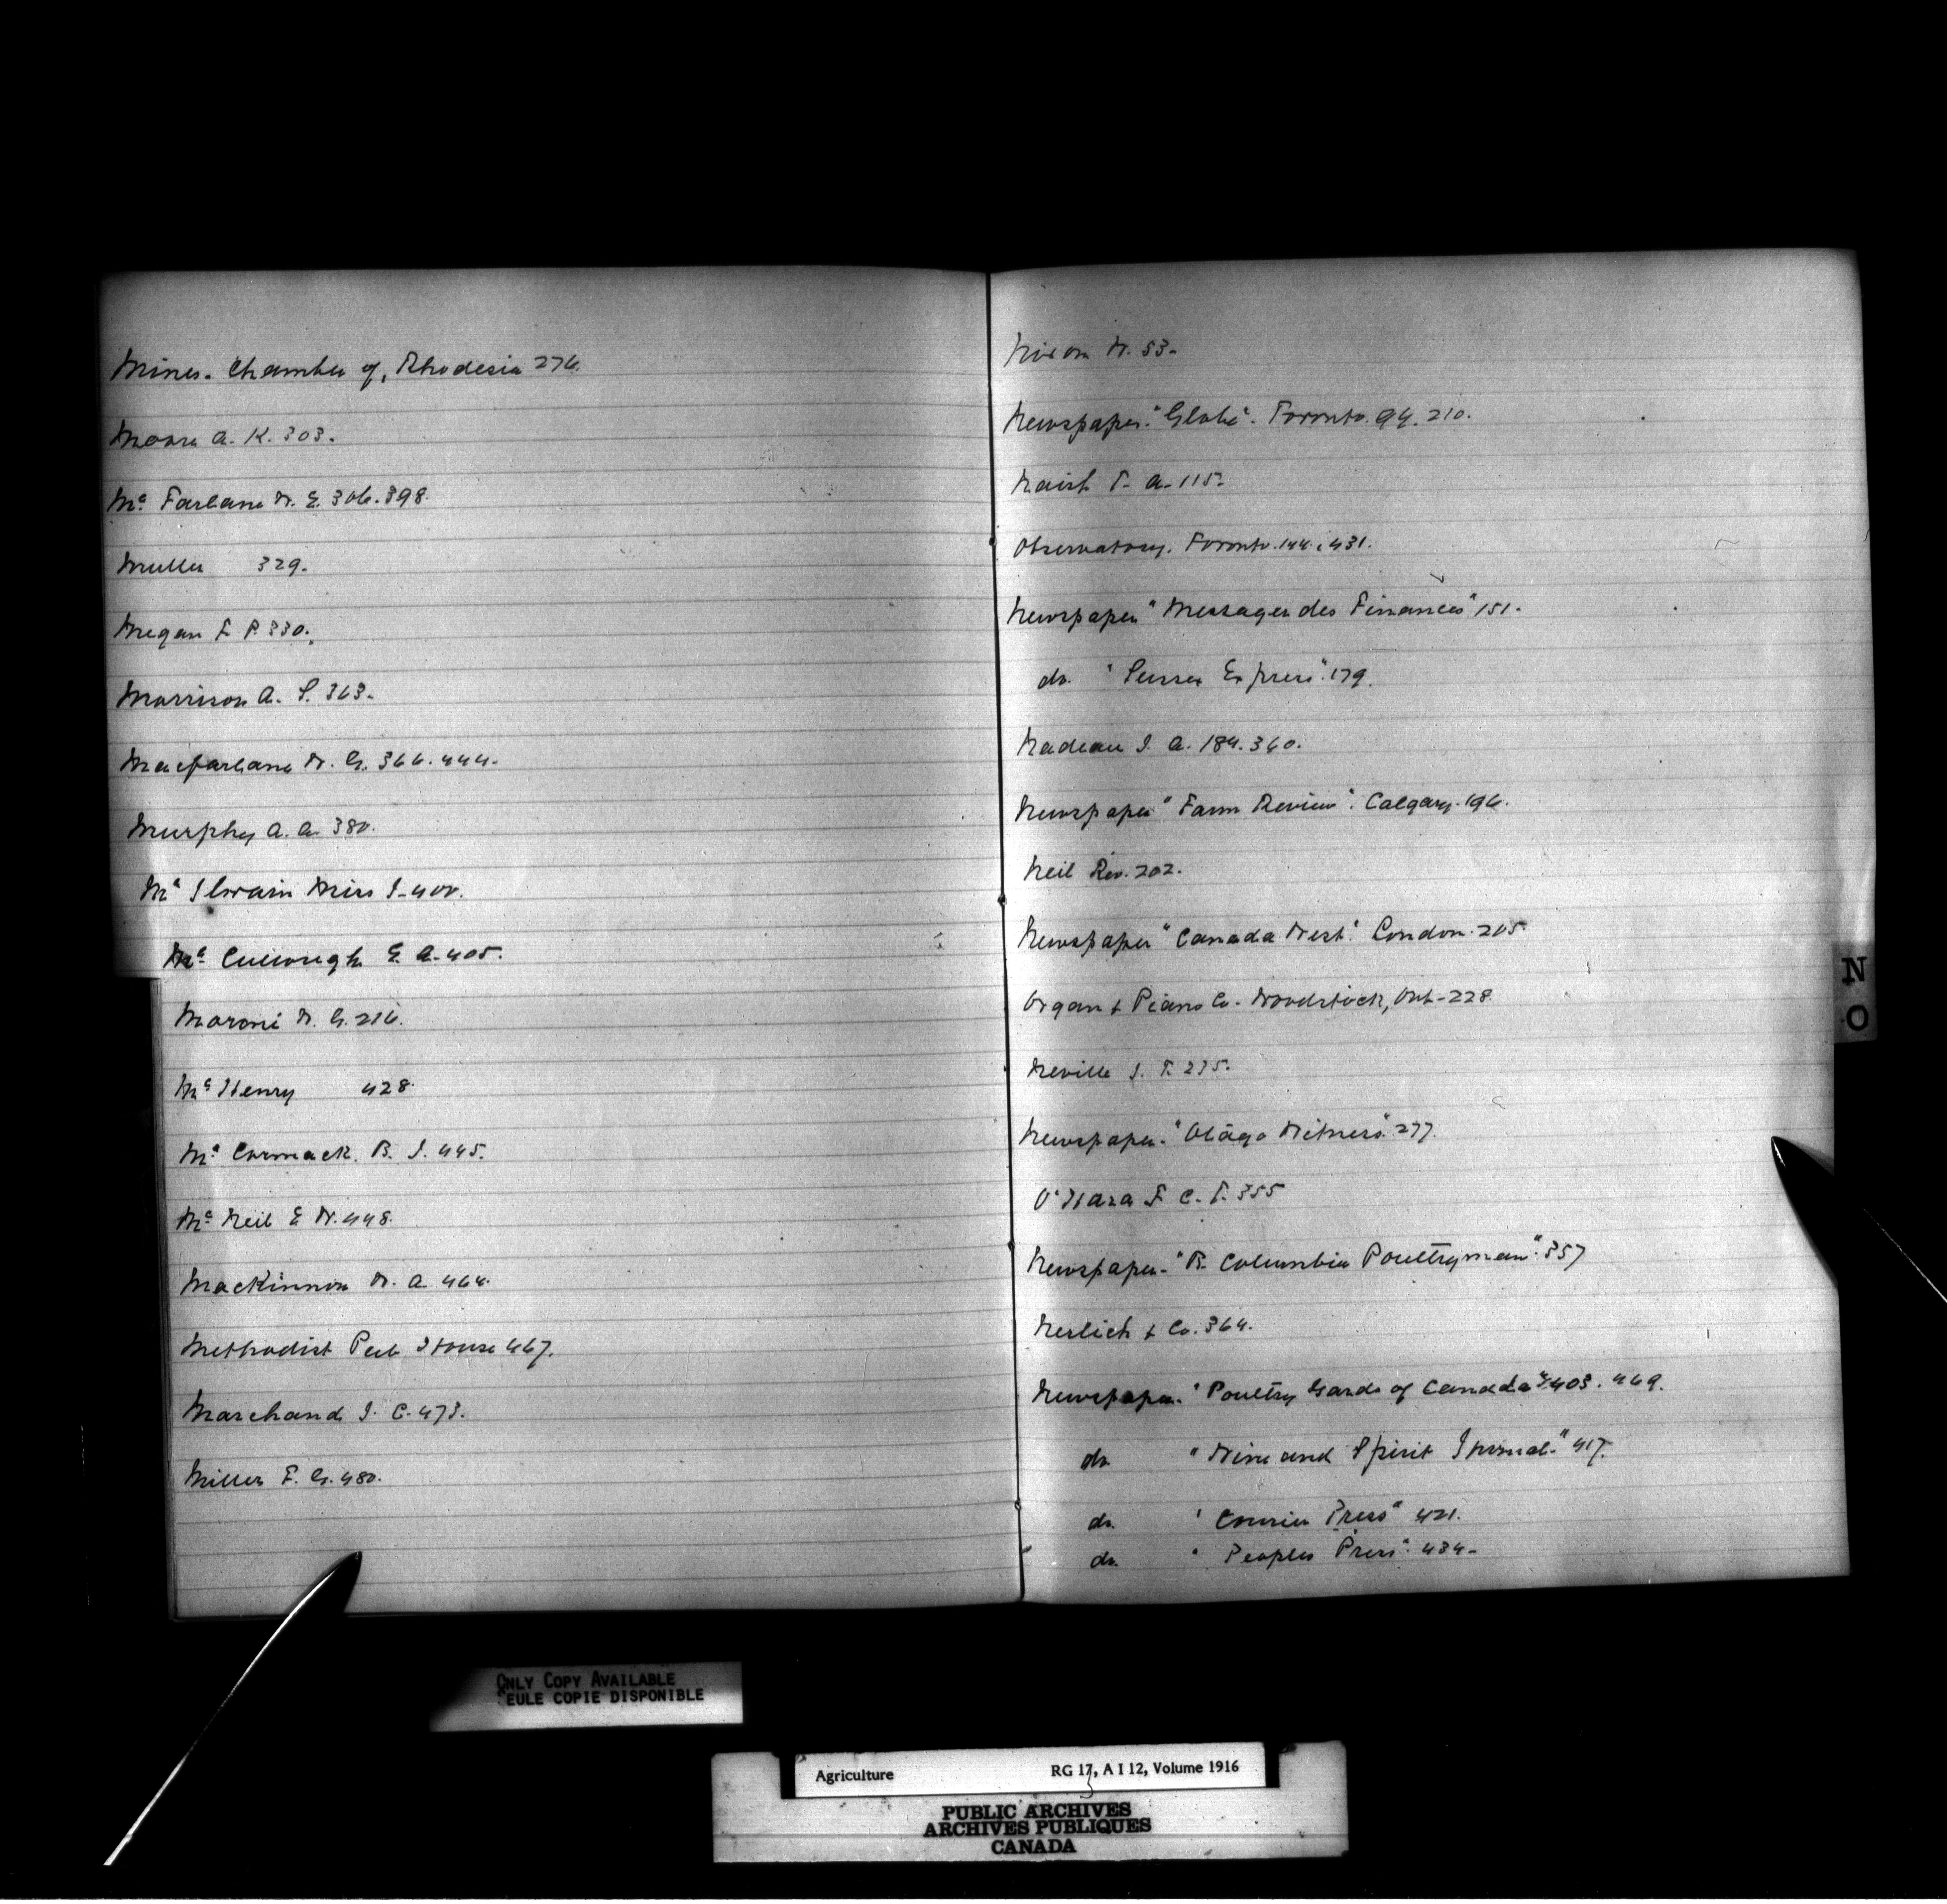 Mines. Chamber of, Rhodesia 276.
Moore A. K. 303.
Mc Farlane W. E. 306. 398.
Muller 329.
Megan F. P. 330.
Morrison A. S. 363.
Macfarlane W. G. 366. 444.
Murphy A. A. 380.
Mc Ilwain Miss J. 400.
Mc Cullough E. A. 405.
Maroni W. G. 216.
Mc Henry 428.
Mc Cormack. B. J. 445.
Mc Neil E. W. 448.
MacKinnon W. A. 464.
Methodist Pub House 467.
Marchand J. C. 473.
Miller F. G. 480.
Nixon W. 53.
Newspaper. "Globe". Toronto. 94. 210.
T. A. 115.
Observatory. Toronto. 144. 431.
Newspaper "Messager des Finances" 151.
do. "Sussex Express". 179.
Nadeau J. A. 184. 360.
Newspaper "Farm Review". Calgary. 196.
Neil Rev. 202.
Newspaper "Canada West". London. 205.
Organ & Piano Co. Woodstock, Ont. 228.
Neville J. T. 275.
Newspaper. "Otago Witness". 277.
O'Hara F. C. T. 355
Newspaper. "B. Columbia Poultryman". 357
Nerlich & Co. 364.
Newspaper. "Poultry Yards of Canada" 403. 469.
do "Wine and Spirit Journal." 417.
do. "Courier Press" 421.
do. "Peoples Press". 434.
N
O
ONLY COPY AVAILABLE
SEULE COPIE DISPONIBLE
Agriculture RG 17, A I 12, Volume 1916
PUBLIC ARCHIVES
ARCHIVES PUBLIQUES
CANADA